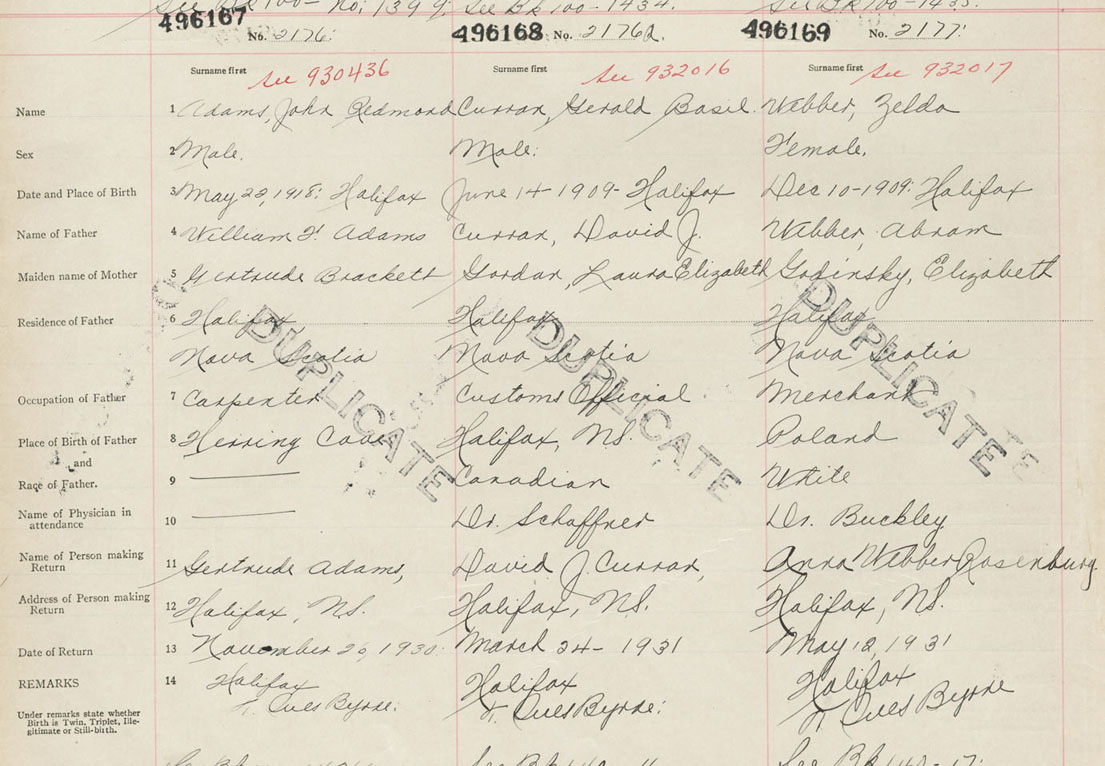 See BK 100 - No. 1399. See BK 100 - 1434. See BK 100 - 1435.
496167 No. 2176. 496168 No. 2176 1/2. 496169 No. 2177.
Surname first See 930436 Surname first See 932016 Surname first See 932017
Name 1 Adams, John Redmond Curran, Gerald Basil. Webber, Zelda
Sex 2 Male. Male. Female.
Date and Place of Birth 3 May 22, 1918. Halifax June 14 - 1909 - Halifax Dec 10 - 1909. Halifax
Name of Father 4 William F. Adams Curran, David J. Webber, Abram
Maiden name of Mother 5 Gertrude Brackett Gordan, Laura Elizabeth Godinsky, Elizabeth
Residence of Father 6 Halifax, Halifax, Halifax,
Nova Scotia Nova Scotia Nova Scotia
DUPLICATE DUPLICATE DUPLICATE
Occupation of Father 7 Carpenter Customs Official. Merchant
Place of Birth of Father 8 Herring Cove Halifax, N.S. Poland
and
Race of Father. 9 Canadian White
Name of Physician in
attendance 10 Dr. Schaffner Dr. Buckley
Name of Person making
Return 11 Gertrude Adams, David J. Curran, Anna Webber Rosenburg.
Address of Person making
Return 12 Halifax, N.S. Halifax, N.S. Halifax, N.S.
Date of Return 13 November 20, 1930. March 24 - 1931 May 12, 1931
REMARKS 14 Halifax Halifax Halifax
Byrne. Byrne. Byrne
Under remarks state whether
Birth is Twin, Triplet, Ille-
gitimate or Still-birth.